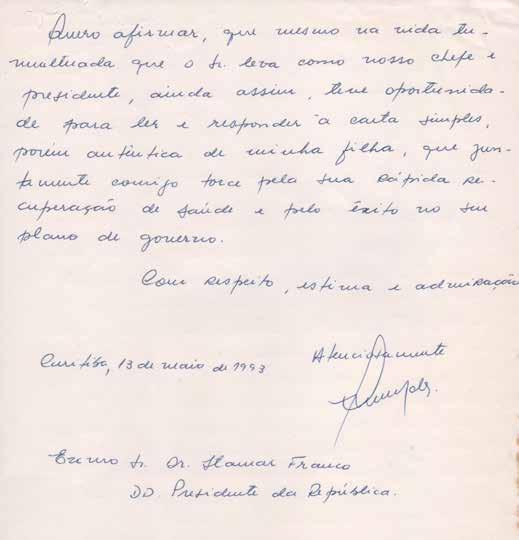 Quero afirmar, que mesmo na vida tu-
multuada que o Sr. leva como nosso chefe e
presidente, ainda assim, teve oportunida-
de para ler e responder à carta simples,
porém autêntica de minha filha, que jun-
tamente comigo torce pela sua rápida re-
cuperação de saúde e pelo êxito no seu
plano de governo.
Com respeito, estima e admiração
Curitiba, 13 de maio de 1993
Atenciosamente
Exmo Sr. Dr. Itamar Franco
DD. Presidente da República.